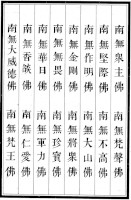 南無衆主佛 南無梵聲佛
南無堅際佛 南無不高佛
南無作明佛 南無大山佛
南無金剛佛 南無將衆佛
南無無畏佛 南無珍寶佛
南無華日佛 南無軍力佛
南無香燄佛 南無仁愛佛
南無大威德佛 南無梵王佛